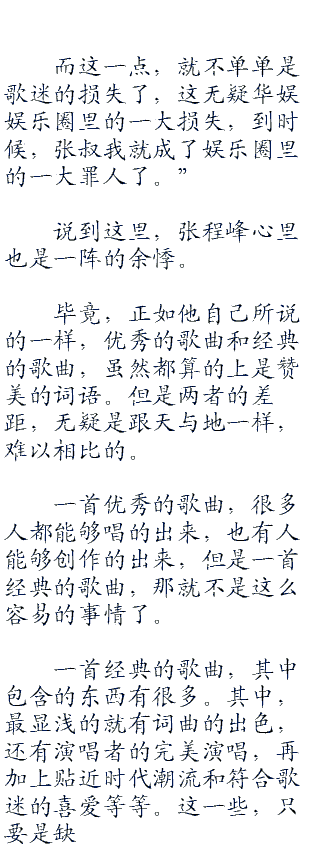 而这一点，就不单单是
歌迷的损失了，这无疑华娱
娱乐圈里的一大损失，到时
候，张叔我就成了娱乐圈里
的一大罪人了。”
说到这里，张程峰心里
也是一阵的余悸。
毕竟，正如他自己所说
的一样，优秀的歌曲和经典
的歌曲，虽然都算的上是赞
美的词语。但是两者的差
距，无疑是跟天与地一样，
难以相比的。
一首优秀的歌曲，很多
人都能够唱的出来，也有人
能够创作的出来，但是一首
经典的歌曲，那就不是这么
容易的事情了。
一首经典的歌曲，其中
包含的东西有很多。其中，
最显浅的就有词曲的出色，
还有演唱者的完美演唱，再
加上贴近时代潮流和符合歌
迷的喜爱等等。这一些，只
要是缺